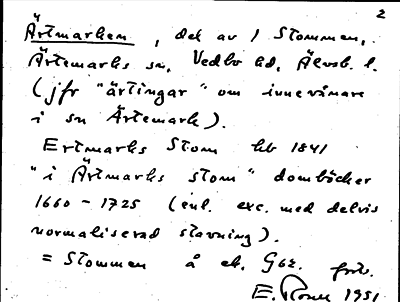 2
Ärtmarken, del av 1 Stommen,
Ärtemarks sn, Vedbo hd, Älvsb. l.
(jfr "ärtingar" om innevånare
i sn Ärtemark).
Ertmarks Stom hb 1841
"i Ärtmarks stom" domböcker
1660 - 1725 (enl. exc. med delvis
normaliserad stavning).
= Stommen å ek. G62.
E. 1951